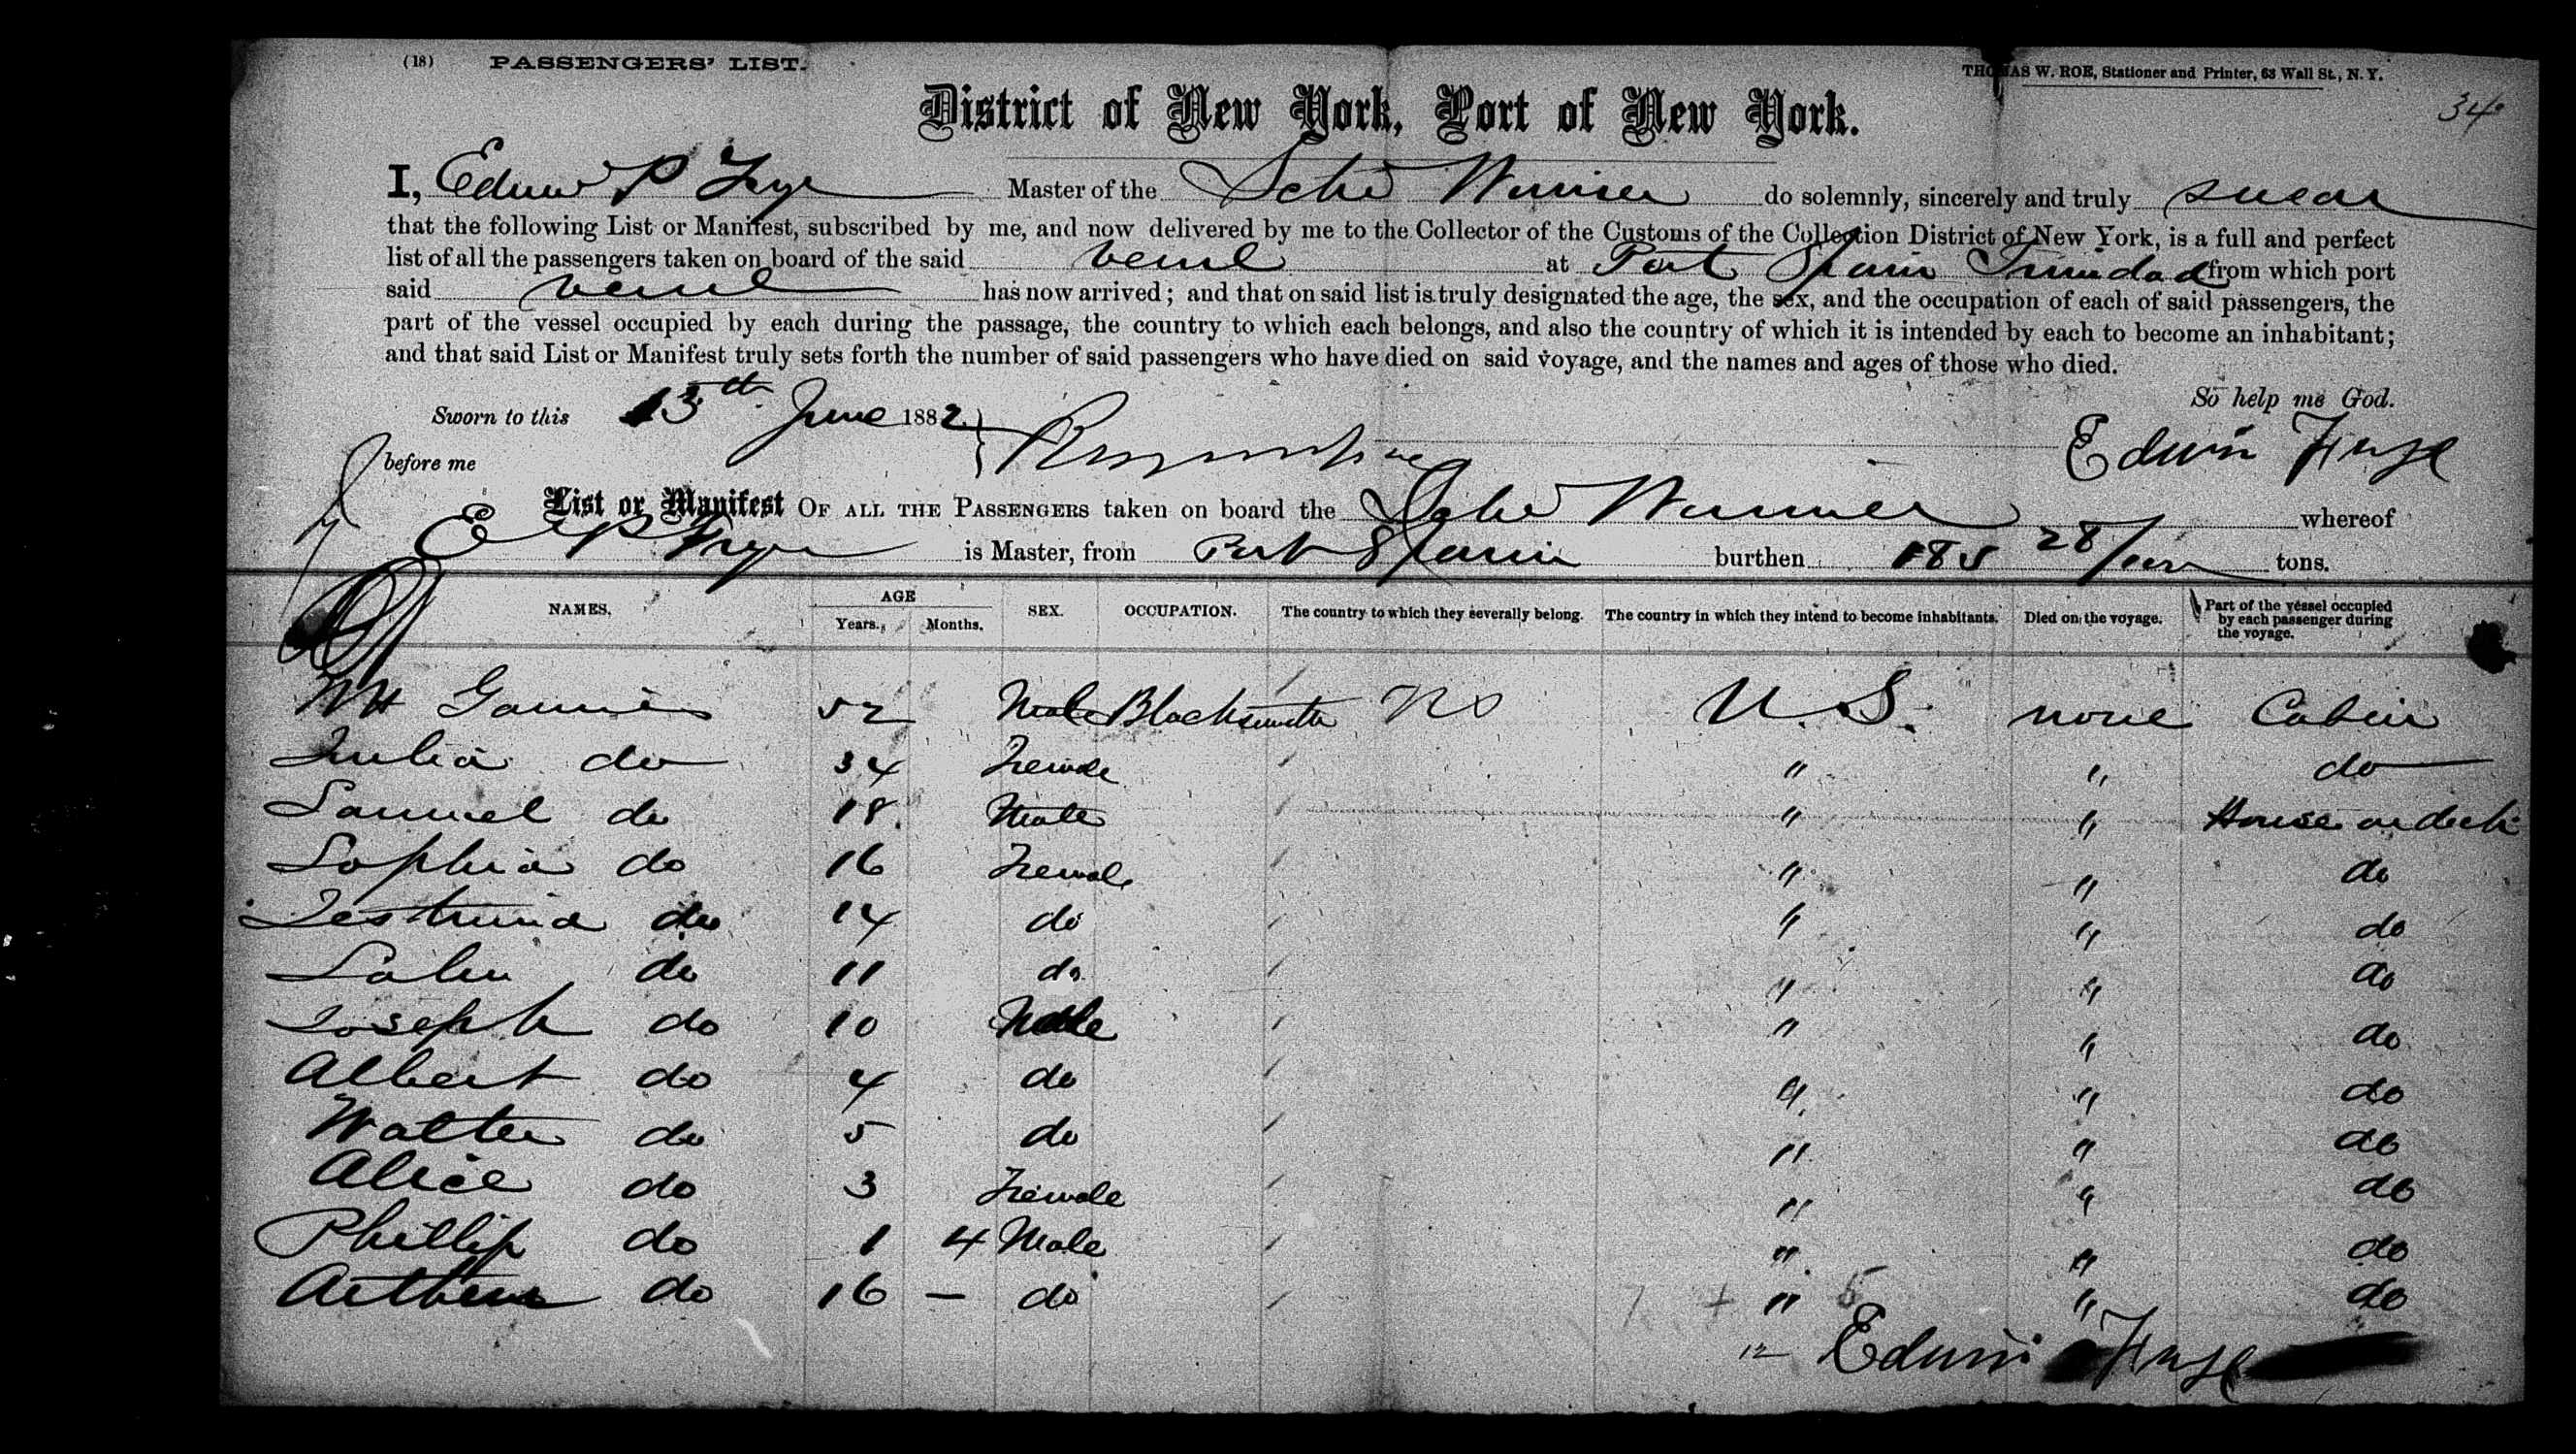 (18) PASSENGERS' LIST.
THOMAS W. ROE, Stationer and Printer, 63 Wall St., N. Y.
34
District of New York, Port of New York.
I, Edwin P Frye Master of the Schr do solemnly, sincerely and truly swear
that the following List or Manifest, subscribed by me, and now delivered by me to the Collector of the Customs of the Collection District of New York, is a full and perfect
list of all the passengers taken on board of the said vessel at Port Spain Trinidad from which port
said vessel has now arrived; and that on said list is truly designated the age, the sex, and the occupation of each of said passengers, the
part of the vessel occupied by each during the passage, the country to which each belongs, and also the country of which it is intended by each to become an inhabitant;
and that said List or Manifest truly sets forth the number of said passengers who have died on said voyage, and the names and ages of those who died.
So help me God.
Sworn to this 13th June 1882
before me
Edwin Frye
List or Manifest OF ALL THE PASSENGERS taken on board the Schr whereof
E P Frye is Master, from Port Spain burthen 185 28/100 tons.
NAMES. AGE Years. Months. SEX. OCCUPATION. The country to which they severally belong. The country in which they intend to become inhabitants. Died on the voyage. Part of the vessel occupied by each passenger during the voyage.
52 Male Blacksmith U. S. none Cabin
Julia do 34 Female " " do
Samuel do 18 Male " " House on deck
Sophia do 16 Female " " do
do 14 do " " do
do 11 do " " do
Joseph do 10 Male " " do
Albert do 4 do " " do
Walter do 5 do " " do
Alice do 3 Female " " do
Phillip do 1 4 Male " " do
do 16 — do " " do
7 + 5
12 Edwin Frye